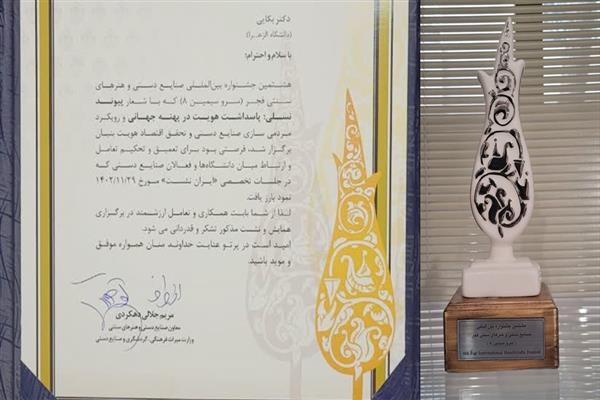 دکتر یکایی
(دانشگاه الزهرا)
با سلام و احترام؛
هشتمین جشنواره بین‌المللی صنایع دستی و هنرهای
سنتی فجر (سرو سیمین ۸) که با شعار پیوند
نسلی: پاسداشت هویت در پهنه جهانی و رویکرد
مردمی سازی صنایع دستی و تحقق اقتصاد هویت بنیان
برگزار شد، فرصتی بود برای تعمیق و تحکیم تعامل
و ارتباط میان دانشگاه‌ها و فعالان صنایع دستی که
در جلسات تخصصی «ایران نشست» مورخ ۱۴۰۲/۱۱/۲۹
نمود بارز یافت.
لذا از شما بابت همکاری و تعامل ارزشمند در برگزاری
همایش و نشست مذکور تشکر و قدردانی می شود.
امید است در پرتو عنایت خداوند منان همواره موفق
و موید باشید.
مریم جلالی دهکردی
معاون صنایع دستی و هنرهای سنتی
وزارت میراث فرهنگی، گردشگری و صنایع دستی
هشتمین جشنواره بین المللی
صنایع دستی و هنرهای سنتی فجر
(سرو سیمین ۸)
8th Fajr International Handicrafts Festival